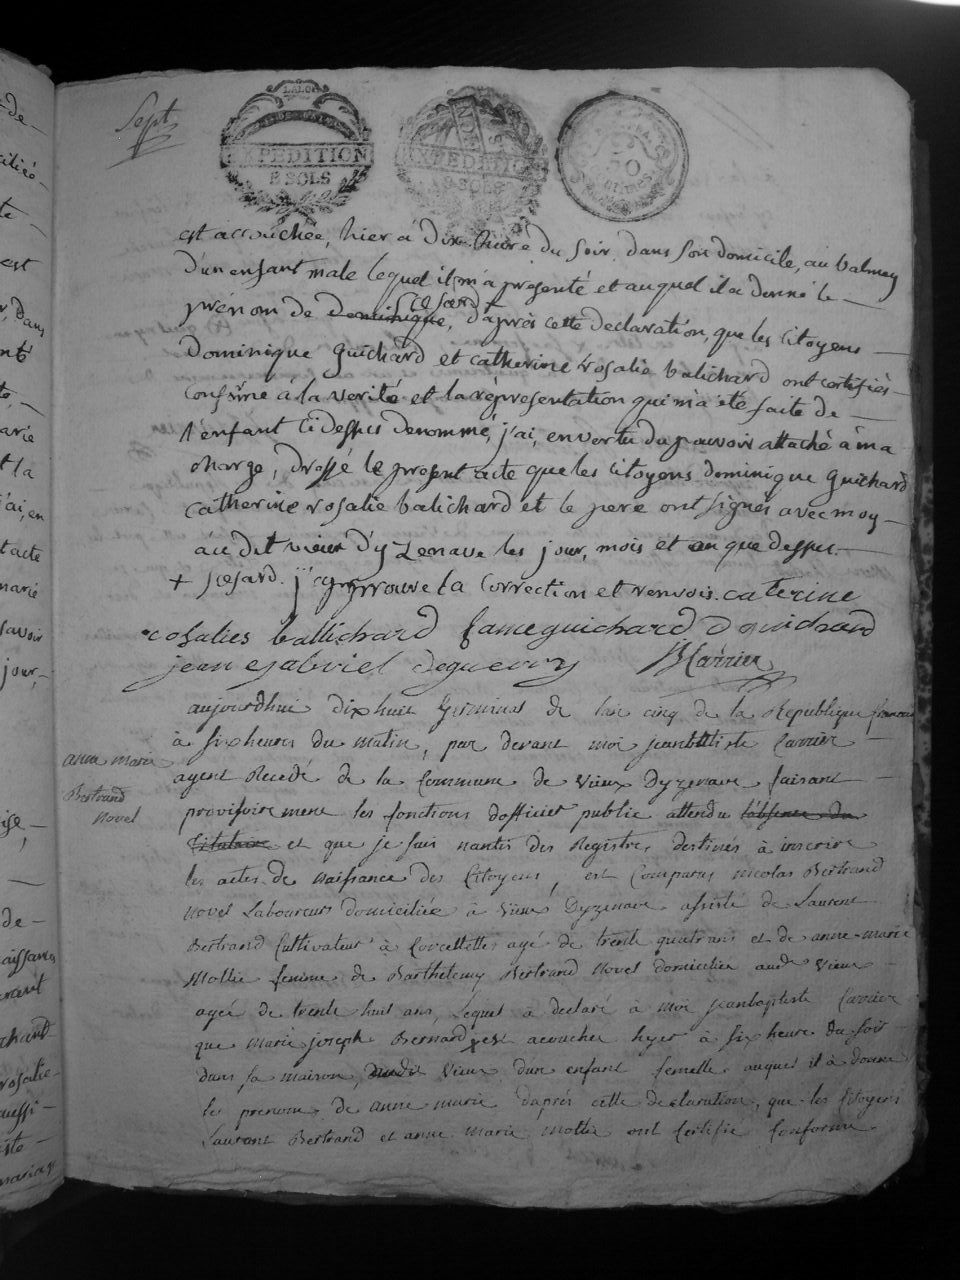 Sept
LA LOI
EXPEDITION
5 SOLS
EXPEDITION
5 SOLS
50
centimes
est accouchée, hier a Dix heure du soir, dans son domicile, au balmey
D'un enfant male lequel il m'a presenté et auquel il a donné le
prénom de Dominique, d'après cette declaration, que les Citoyens
Dominique Guichard et catherine rosalie balichard ont certifiés
Conforme à la verité et la répresentation qui m'a été faite de
l'enfant ci dessus denommé, j'ai, en vertu du pouvoir attaché à ma
charge, dressé le present acte que les Citoyens dominique Guichard
catherine rosalie balichard et le pere ont signés avec moy
au dit vieux d'yzenave les jour, mois et an que dessus
+ Scesard. j'approuve la Correction et renvois. caterine
rosalies ballichard fame guichard D Guichard
jean gabriel deguerry JB Carrier
aujourdhui dix huit Germinal de l'an cinq de la Republique francaise
à six heures du matin, par devant moi jean Batiste Carrier
anne marie
agent Recedé de la Commune de vieux Dyzenave faisant
Bertrand
novel
provisoirement les fonctions d'officier public attendu l'absence du
titulaire et que je suis nantis des Registres destinés à inscrire
les actes de Naissance des Citoyens, est Comparus nicolas Bertrand
novel Laboureur domiciliée à Vieux Dyzenave assisté de Laurent
Bertrand Cultivateur à Corcellettes agé de trente quatre ans et de anne-marie
Mollie femme de Barthelemy Bertrand Novel domicilié audt Vieux
agée de trente huit ans, Lequel à declaré à moi jeanbaptiste Carrier
que marie joseph Bernard x est acouchée hyer à six heure du soir
dans sa maison, audit Vieux d'un enfant femelle auquel il à donné
les prenoms de anne marie d'après cette declaration, que les Citoyens
Laurent Bertrand et anne Marie Mollie ont Certifié Conforme